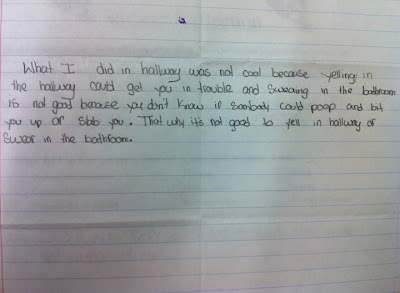 What I did in hallway was not cool because yelling in
the hallway could get you in trouble and swearing in the bathroom
is not good because you don't know if sombody could poop and bit
you up or stab you. That why it's not good to yell in hallway or
swear in the bathroom.